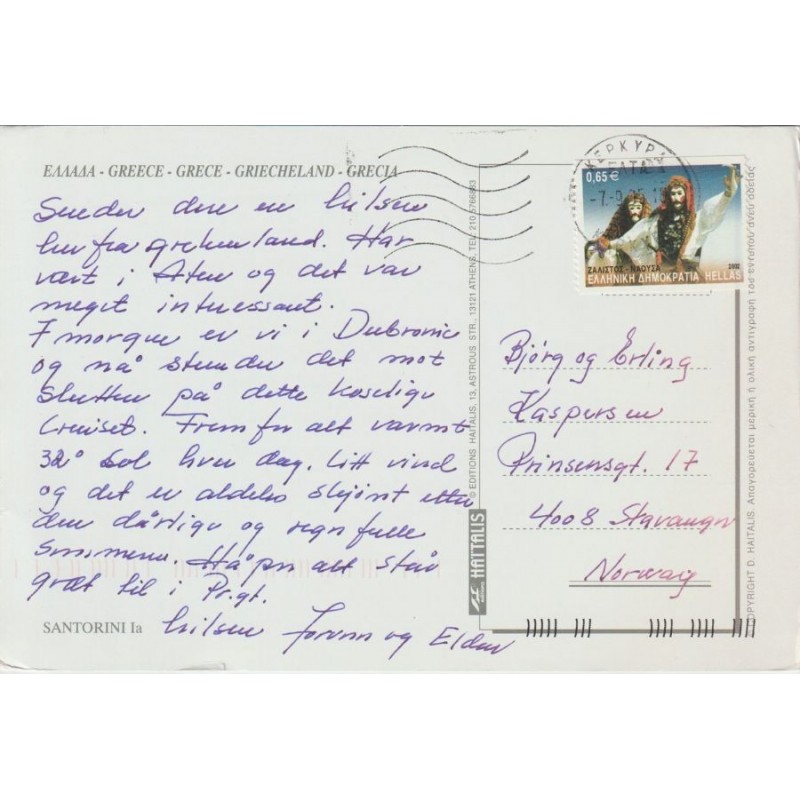 ΕΛΛΑΔΑ - GREECE - GRECE - GRIECHELAND - GRECIA
Sender dere en hilsen
her fra grekenland. Har
vært i Aten og det var
meget intressant.
I morgen er vi i Dubronic
og nå stunder det mot
slutten på dette koselige
cruiset. Fremfor alt varmt
32° sol hver dag. Litt vind
og det er aldeles skjønt etter
den dårlige og regnfulle
sommeren. Håper alt står
græt til i Pr.gt.
hilsen Jorunn og Eldar
SANTORINI Ia
© EDITIONS. HAITALIS, 13, ASTROUS. STR., 13121 ATHENS, TEL: 210 5766883
HAITALIS
editions
ΚΕΡΚΥΡΑ
0,65 €
2002
ΖΑΛΙΣΤΟΣ - ΝΑΟΥΣΑ
ΕΛΛΗΝΙΚΗ ΔΗΜΟΚΡΑΤΙΑ HELLAS
Bjørg og Erling
Kaspersen
Prinsensgt. 17
4008 Stavanger
Norway
COPYRIGHT D. HAITALIS. Απαγορεύεται μερική ή ολική αντιγραφή του εντύπου άνευ αδείας